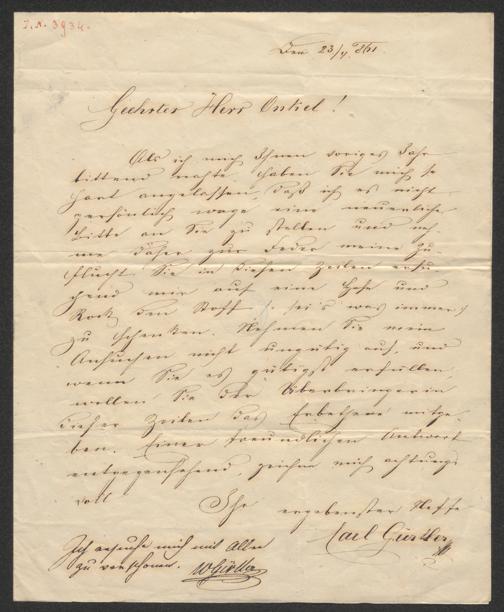 I. N. 3934.
Den 23/7 861.
Geehrter Herr Onkel!
Als ich mich Ihnen voriges Jahr
bittend nahte, haben Sie mich so
hart angelassen, daß ich es nicht
persönlich wage eine neuerliche
Bitte an Sie zu stellen und neh-
me daher zur Feder meine Zu-
flucht Sie in diesen Zeilen ersu-
chend mir auf eine Hose und
Rock den Stoff (: sei's was immer :)
zu schenken. Nehmen Sie mein
Ansuchen nicht ungütig auf, und
wenn Sie es gütigst erfüllen,
wollen Sie der Überbringerin
dieser Zeilen das Erbethene mitge-
ben. Einer freundlichen Antwort
entgegensehend, zeichne mich achtungs
voll
Ihr ergebenster Neffe
Karl Gürtler
Ich ersuche mich mit Allem
zu verschonen. Gürtler